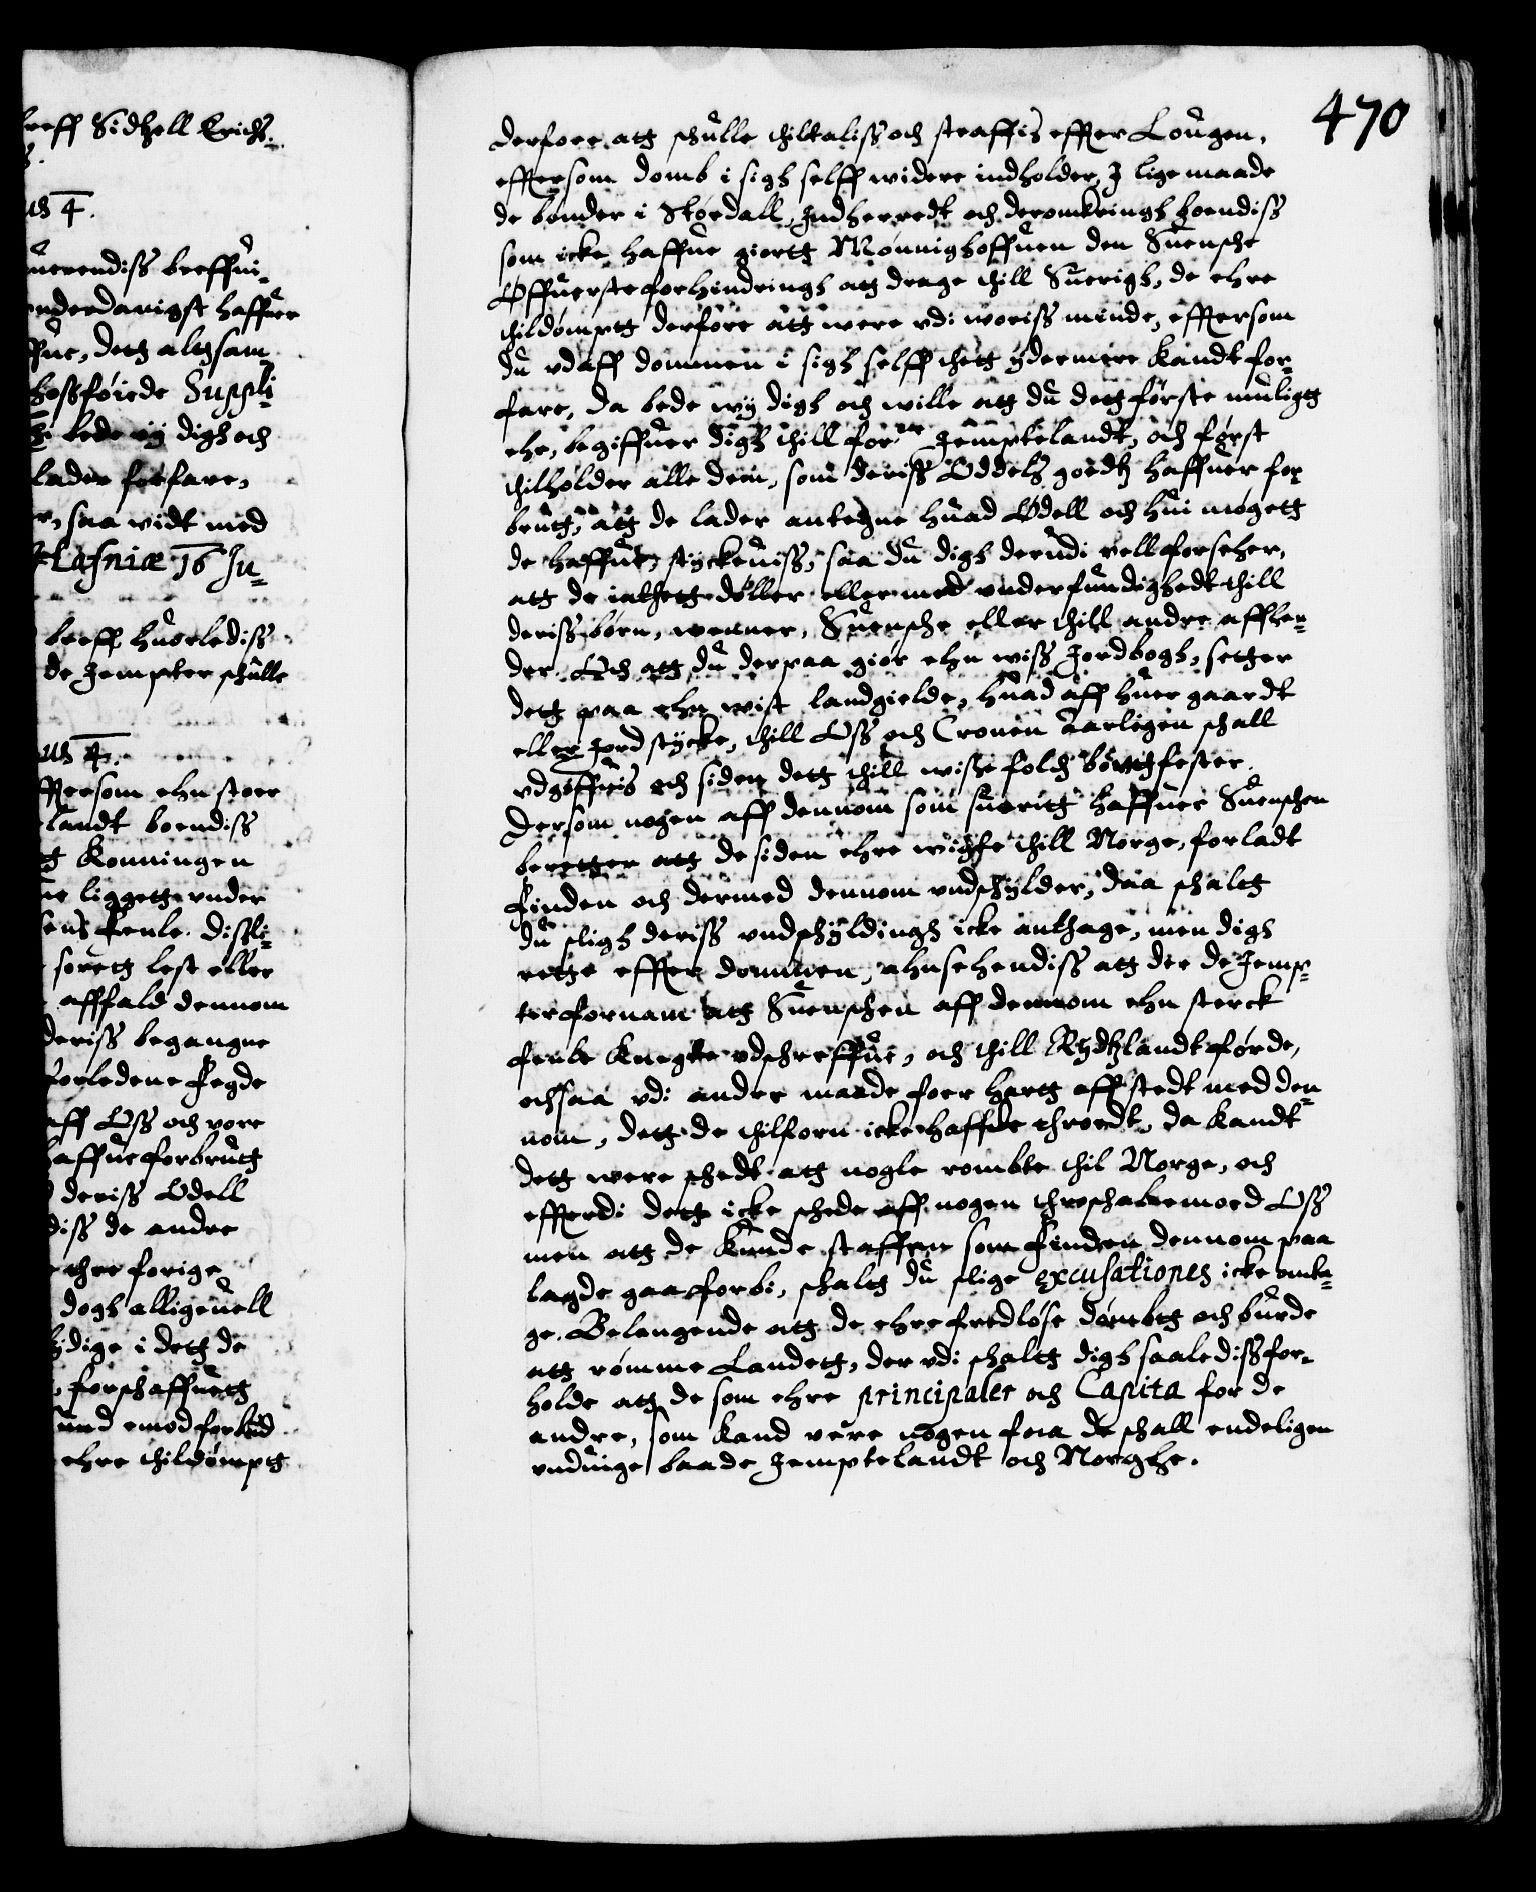 reff Sidsell Erichs.
us 4.
uerendiss breffui-
underdanigst haffuer
ffue, dett altsam
hossføiede Suppli-
bede wij digh och
lader forfare,
r, saa vidt med
Hafniæ 16 Ju-
breff huorlediss
de Jempter schulle
us 4.
ffersom ehn stoer
landt boendiss
Konningen
ne liggett under
ens fenle. dissli-
sorett lest eller
affald dennom
deriss begangne
forledene Fegde
aff Oss och vore
haffue forbrutt
deriss Odell
diss de andre
there forige
dogh alligeuell
dige i dett de
forschaffuett
und emod forbud
ehre thildømptt
470
derfore att schulle thiltaliss och straffis effter Lougen,
effersom domb i sigh selff widere indholder, J lige maade
de bønder i Størdall, Jndherredt och deromkringh boendiss
som icke haffue giortt Mønnighoffuen den Suensche
Øffuerste forhindringh att drage thill Suerigh, de ehre
thildømptt derfore att were udi woriss minde, effersom
du udaff dommen i sigh selff thett ydermere kandt for-
fare, da bede wij digh och wille att du dett første muligtt
ehr, begiffuer digh thill for.ne Jemptelandt, och først
thilholder alle dem, som deriss Oddels goedtz haffuer for
brutt, att de lader antegne huad Odell och hui møgett
de haffue, styckeuiss, saa du digh derudi vell forseher,
att de inthett døller eller med underfundighedt thill
deriss børn, wenner, Suensche eller thill andre affhen-
der. Och att du derpaa giør ehn wiss Jordbogh, setter
dett paa ehn wist landgielde, huad aff huer gaardt
eller jord stycke, thill Oss och Cronen aarligen schall
udgiffuis och siden dett thill wisse folch bortfester.
Dersom nogen aff dennom som suoritt haffuer Suenschen
beretter att de siden ehre wigte thill Norge, forladt
Finden och dermed dennom undschylder, daa schalt
du sligh deriss undschyldingh icke anthage, men digh
rette effter dommen, ahnsehendiss att der de Jemp-
ter fornam att Suenschen aff dennom ehn sterck
fenle Knegte udschreffue, och thill Rydtzlandt førde,
ochsaa udi andre maade foer hartt aff stedt med den-
nom, dett de thilforn icke haffde throedt, da kandt
dett were schedt att nogle rømbte thil Norge, och
efferdi dett icke schede aff nogen throschab emod Oss
men att de kunde straffen som finden dennom paa
lagde gaa forbi, schalt du slige excusationes icke antha-
ge. Belangende att de ehre fredløse dømbtt och burde
att rømme Landett, der udi schaltt digh saaledissfor-
holde att de som ehre principaler och Capita for de
andre, som kand vere nogen faa de schall endeligen
unduige baade Jemptelandt och Norghe.